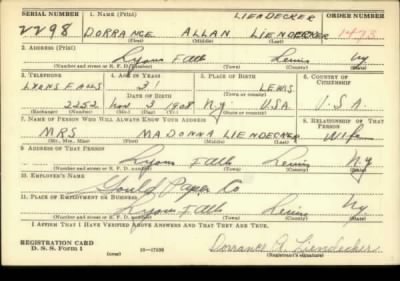 SERIAL NUMBER 1. NAME (Print) LIENDECKER ORDER NUMBER
2298 DORRANCE ALLAN LIENDECKER 1473
(First) (Middle) (Last)
2. ADDRESS (Print)
Lyons Falls Lewis NY
(Number and street or R. F. D. number) (Town) (County) (State)
3. TELEPHONE 4. AGE IN YEARS 5. PLACE OF BIRTH 6. COUNTRY OF CITIZENSHIP
LYONS FALLS 31 LEWIS
DATE OF BIRTH (Town) (County) U.S.A.
2252 Nov 3 1908 N.Y. USA
(Exchange) (Number) (Mo.) (Day) (Yr.) (State) (Country)
7. NAME OF PERSON WHO WILL ALWAYS KNOW YOUR ADDRESS 8. RELATIONSHIP OF THAT PERSON
MRS MADONNA LIENDECKER Wife
(Mr., Mrs., Miss) (First) (Middle) (Last)
9. ADDRESS OF THAT PERSON
Lyons Falls Lewis N.Y
(Number and street or R. F. D. number) (Town) (County) (State)
10. EMPLOYER'S NAME
Gould Paper Co
11. PLACE OF EMPLOYMENT OR BUSINESS
Lyons Falls Lewis NY
(Number and street or R. F. D. number) (Town) (County) (State)
I AFFIRM THAT I HAVE VERIFIED ABOVE ANSWERS AND THAT THEY ARE TRUE.
REGISTRATION CARD
D. S. S. Form 1 (over) 16—17105 Dorrance A. Liendecker
(Registrant's signature)